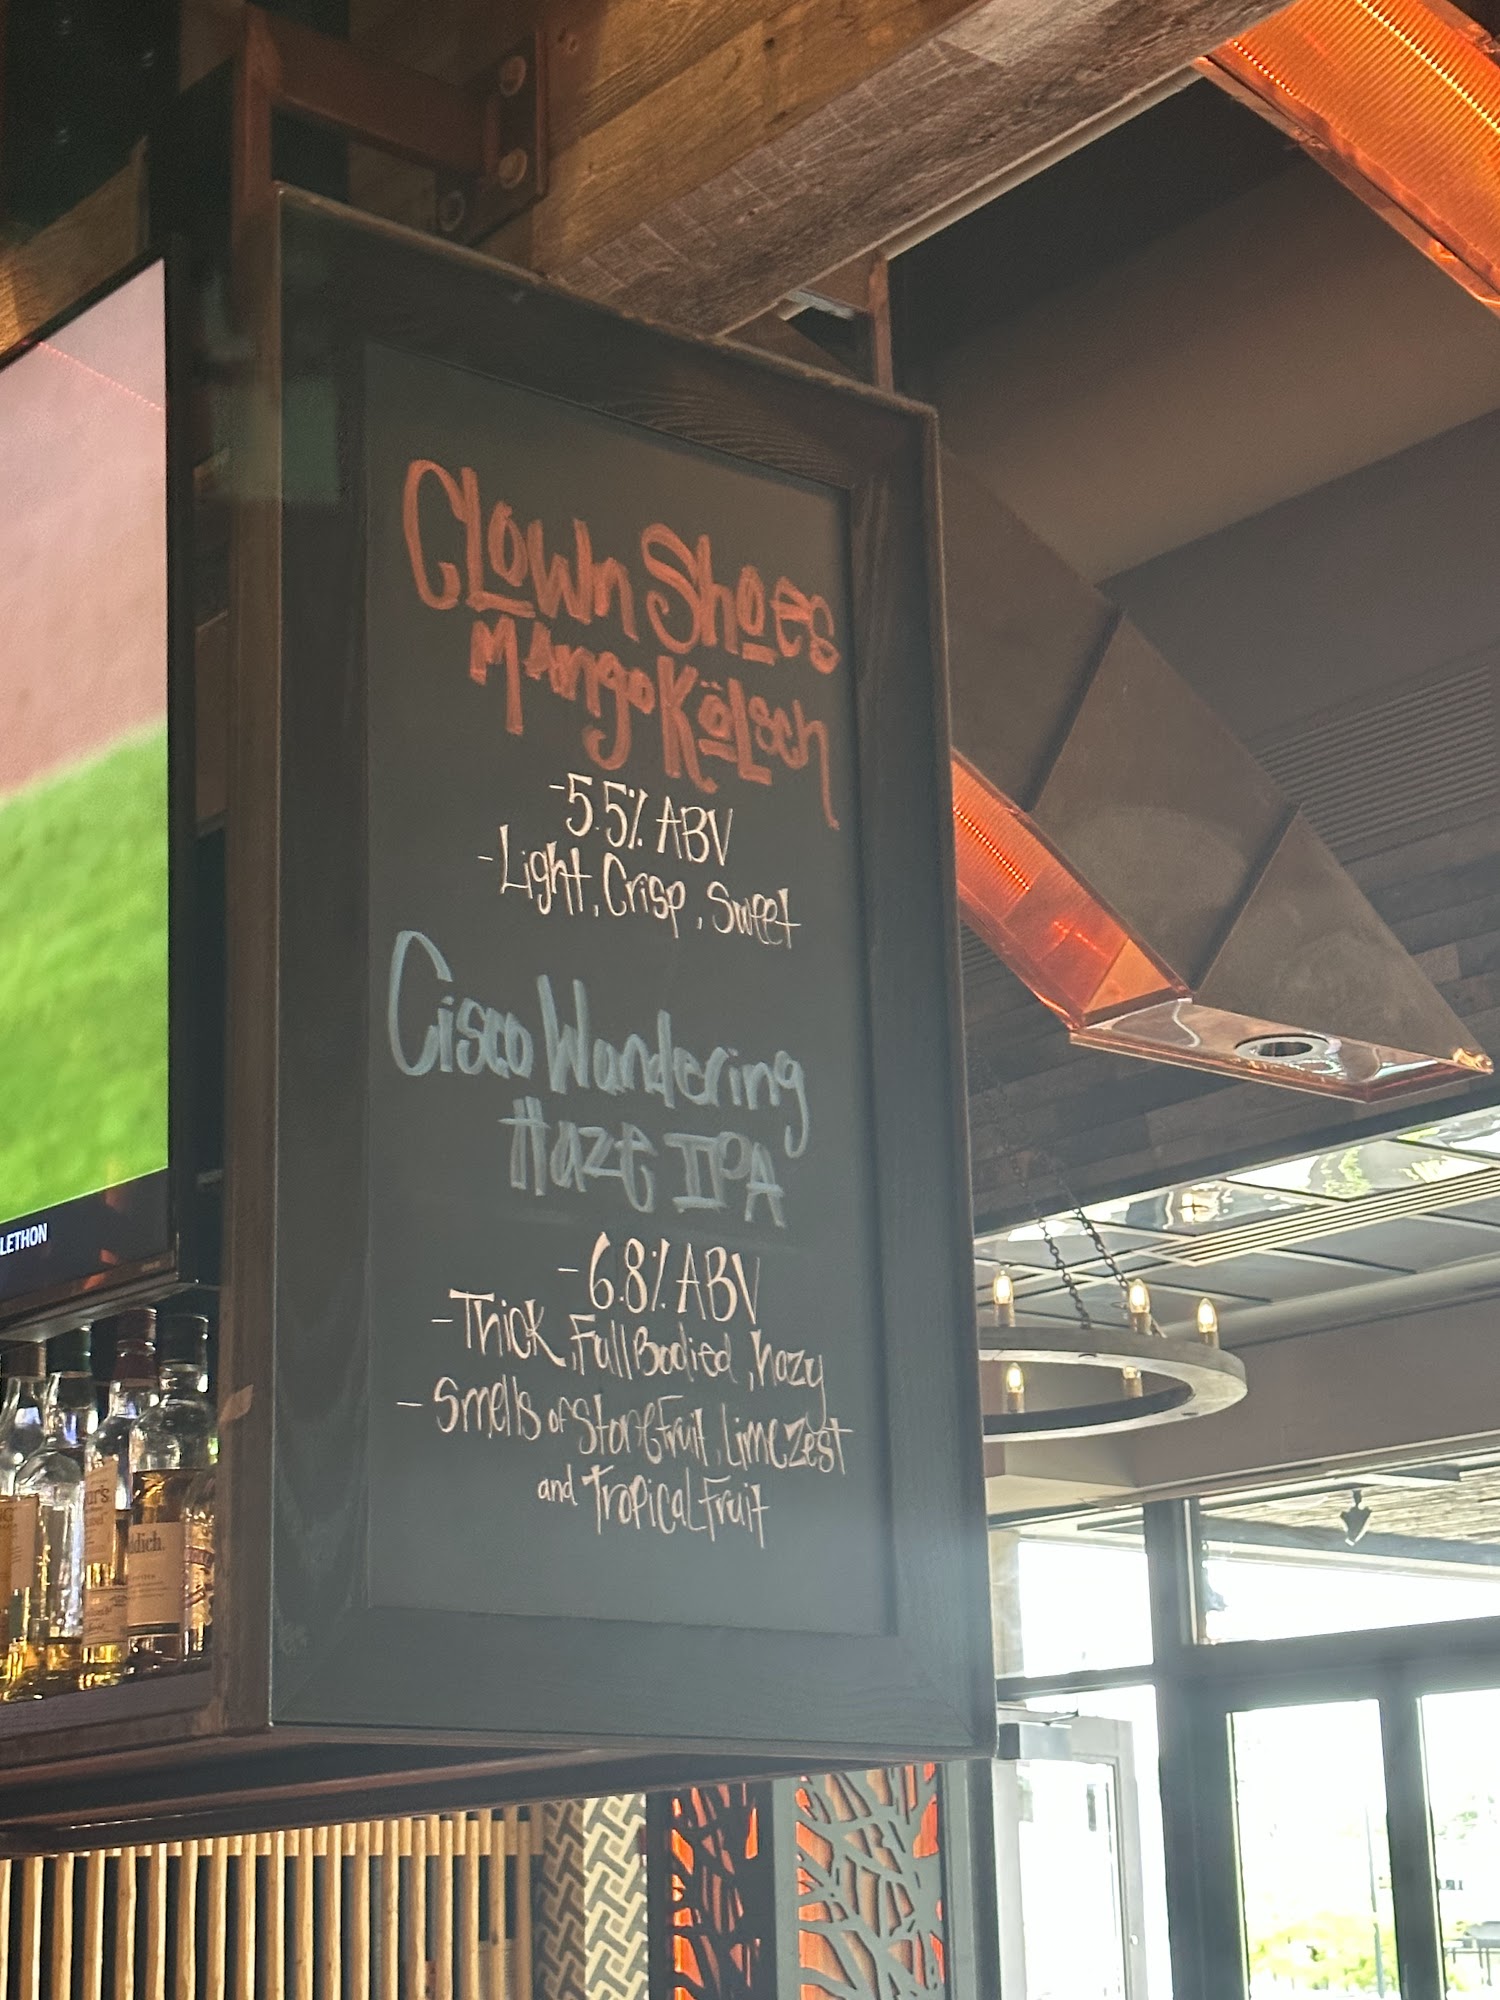 Clown Shoes
Mango Kölsch
-5.5% ABV
-Light, Crisp, Sweet
Cisco Wandering
Haze IPA
-6.8% ABV
-Thick, Full Bodied, hazy
-Smells of Stone Fruit, Lime Zest
and Tropical Fruit
LETHON
ddich.